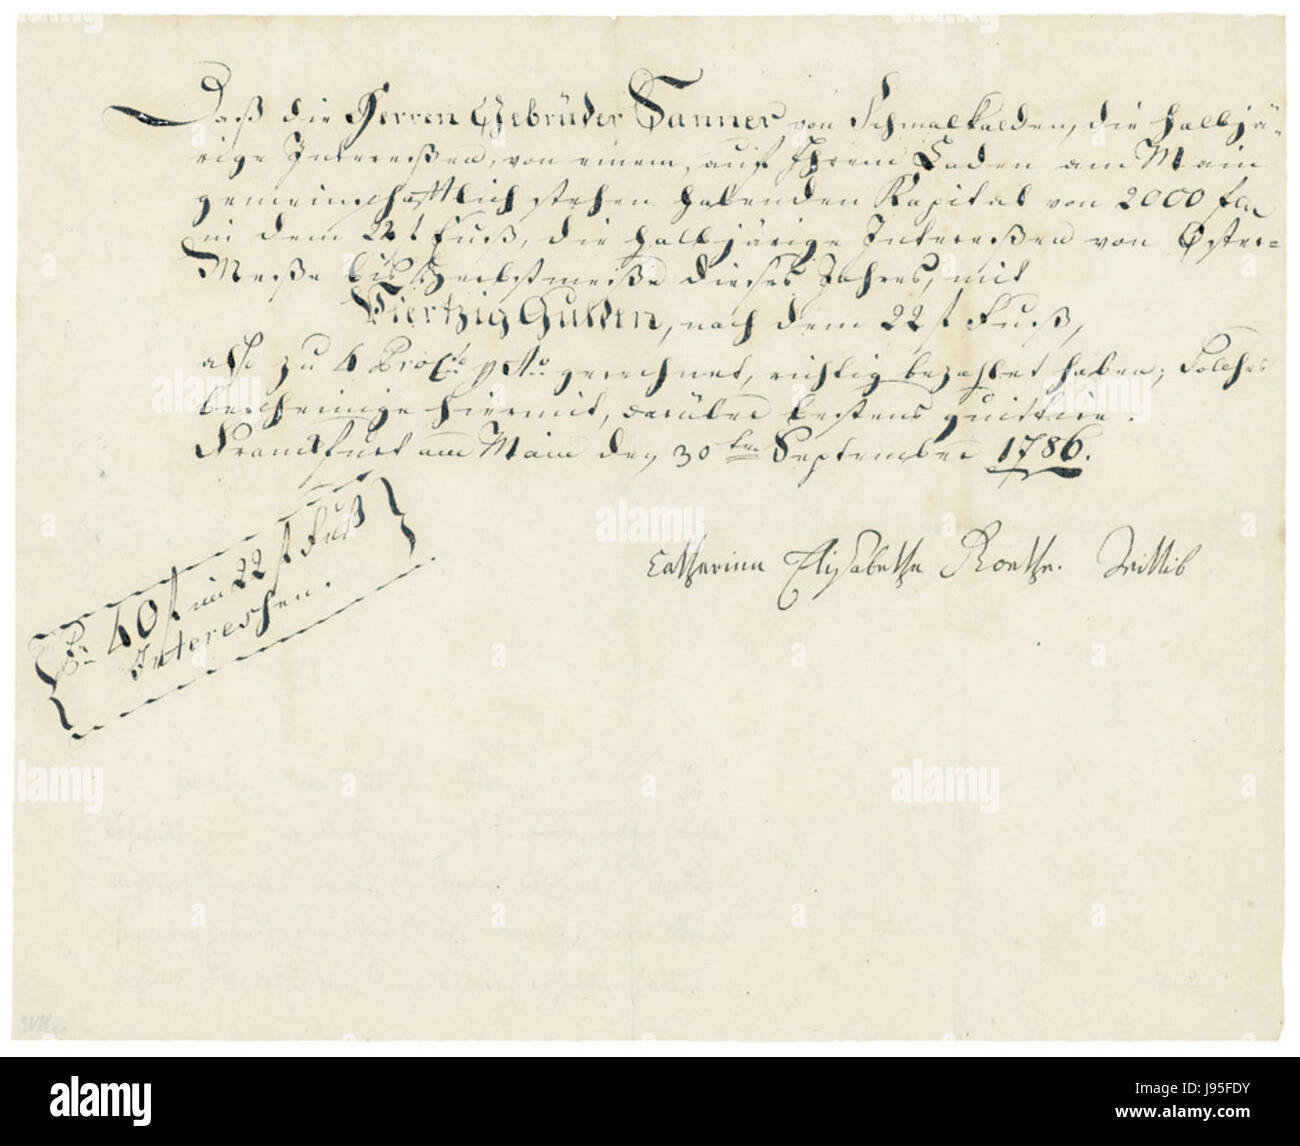 Daß die Herren Gebrüder Sanner von Schmalkalden, die halbjä-
rige Intereßen, von einem, auf Ihrem Laden am Main
gemeinschafftlich stehen habenden Kapital von 2000 f
in dem 22 f Fuß, die halbjärige Intereßen von Oster-
Meße bis Herbstmeße dieses Jahres, mit
Viertzig Gulden, nach dem 22 f Fuß,
also zu 4 ProCto p Ao gerechnet, richtig bezahlet haben; Solches
bescheinige hiermit, darüber bestens quittire.
Franckfurt am Main den 30ten September 1786.
Catharina Elisabetha Goethe. Wittib
Pr 40 f im 22 f Fuß
Intereshen.
alamy
Image ID: J95FDY
www.alamy.com